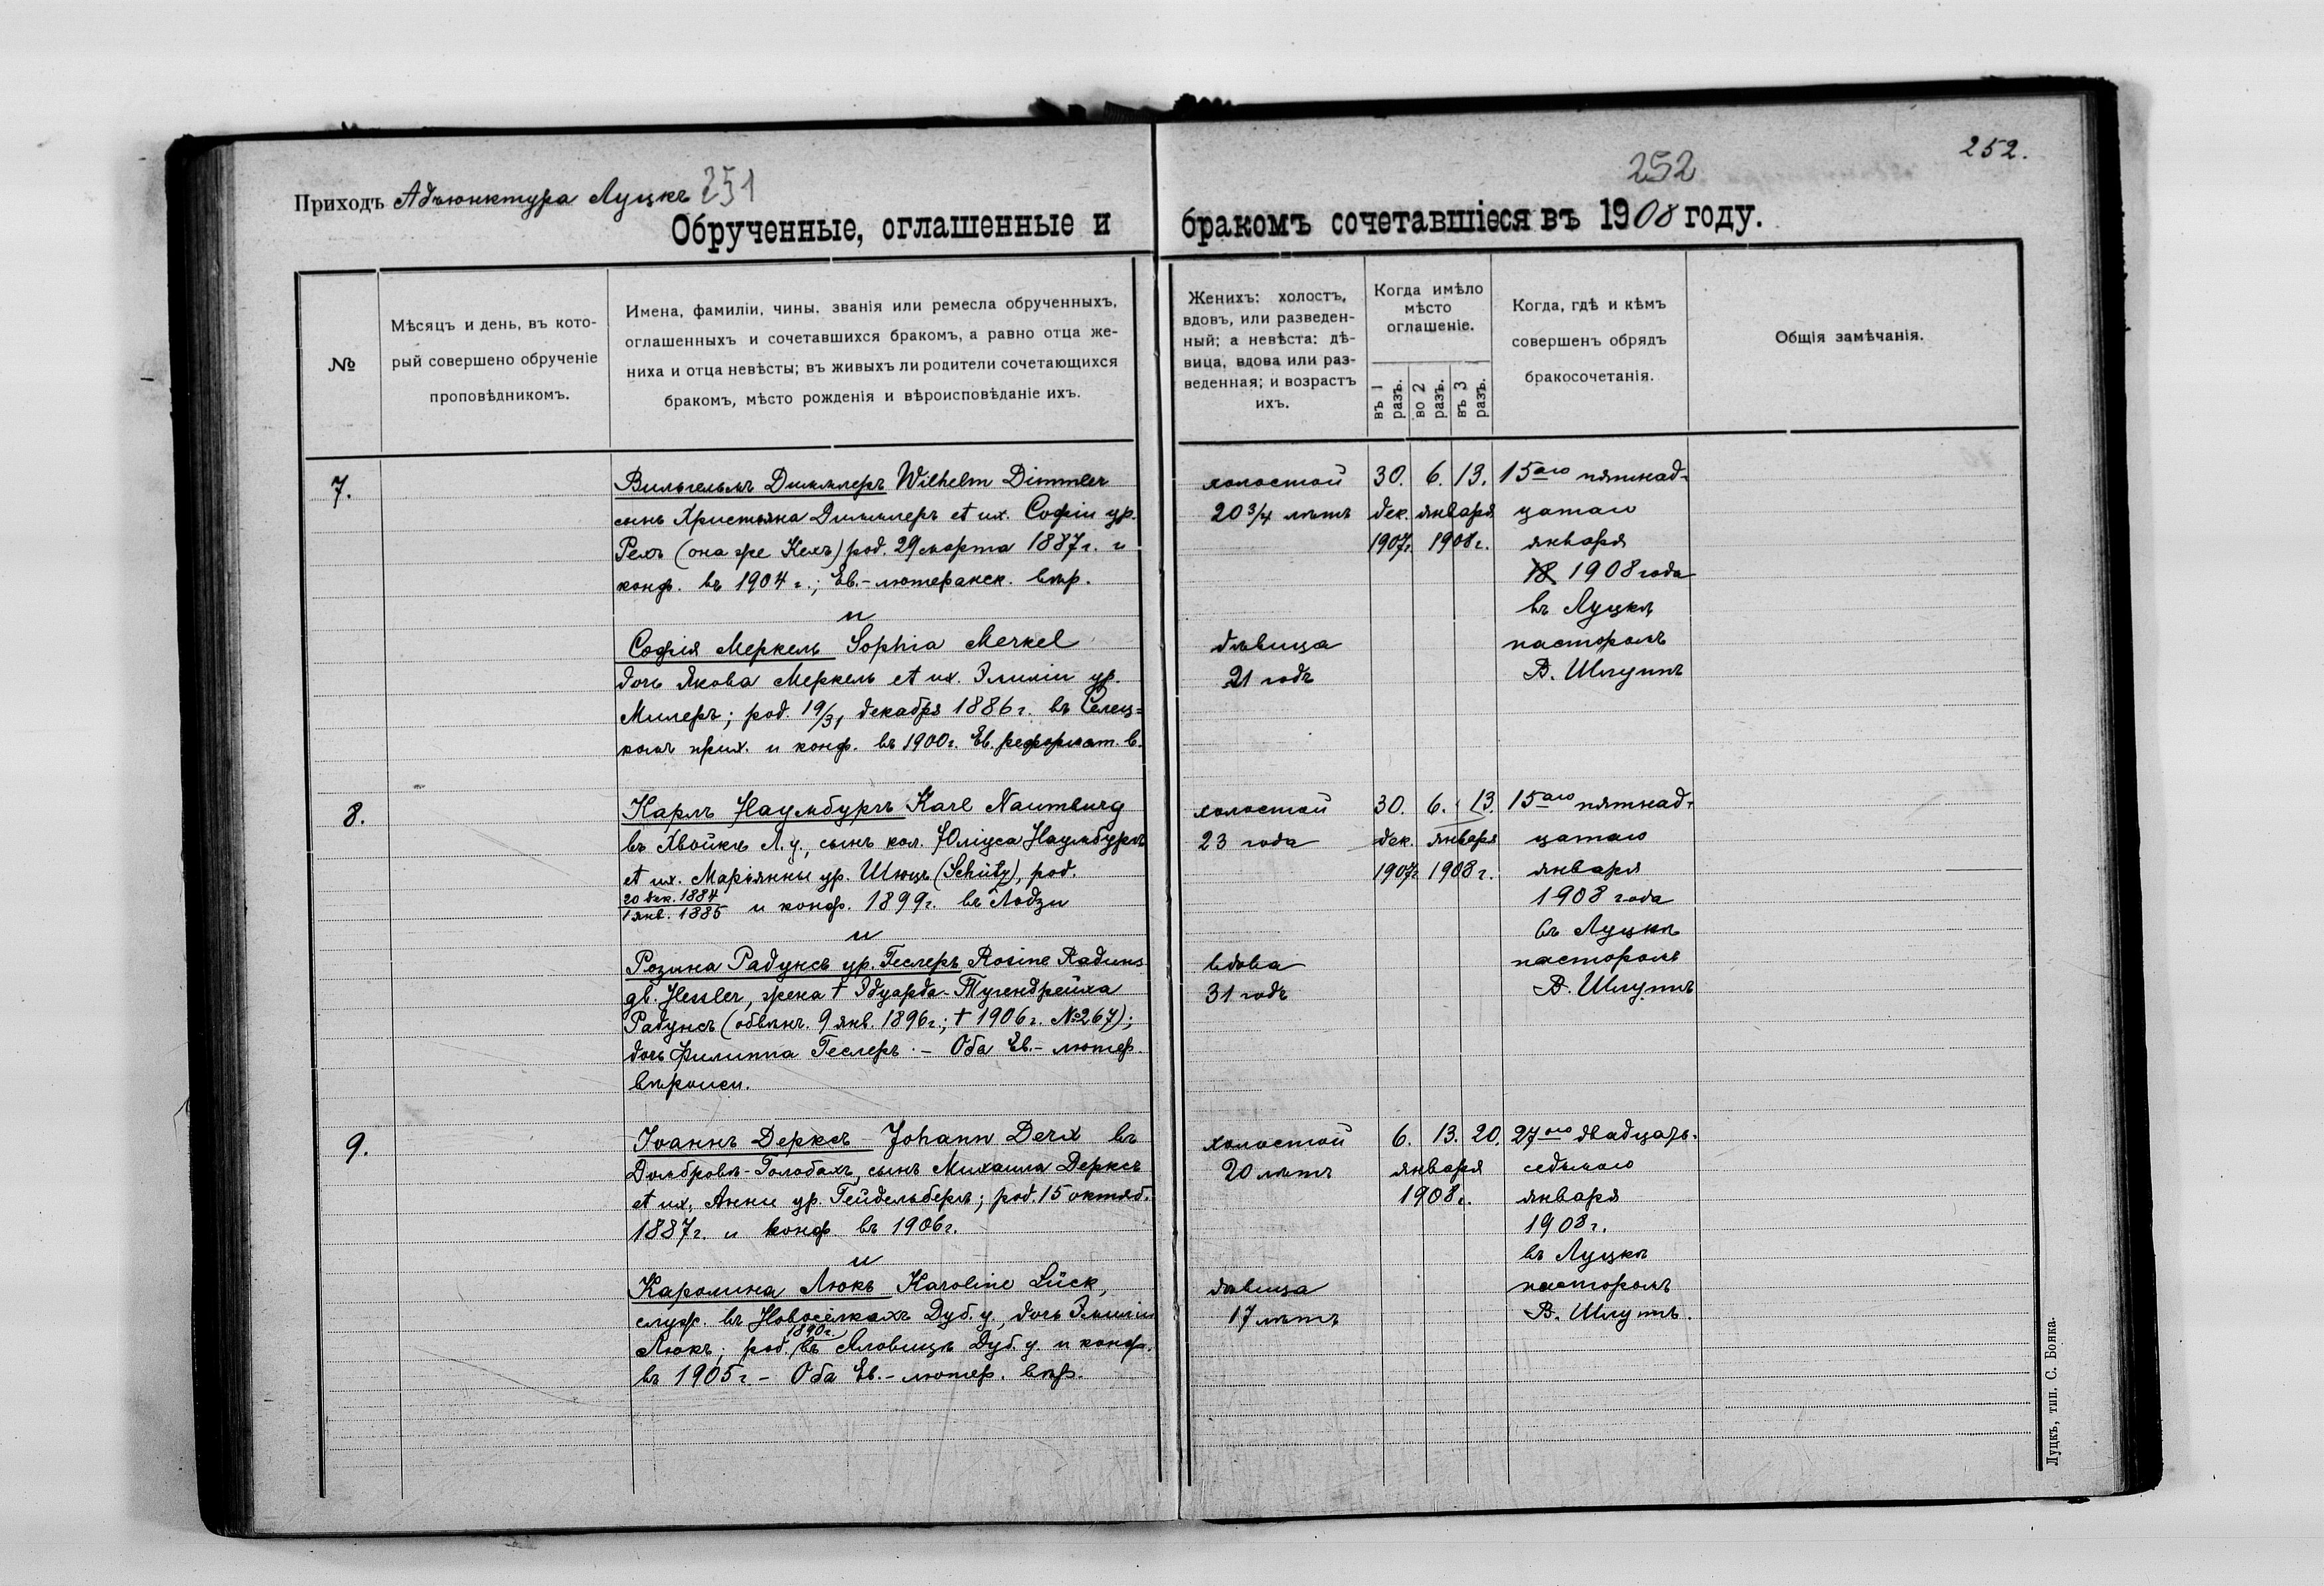 252.
Приходъ Адъюнктура Луцкъ 251
252
Обрученные, оглашенные и бракомъ сочетавшіеся въ 1908 году.
№
Мѣсяцъ и день, въ кото-
рый совершено обрученіе
проповѣдникомъ.
Имена, фамиліи, чины, званія или ремесла обрученныхъ,
оглашенныхъ и сочетавшихся бракомъ, а равно отца же-
ниха и отца невѣсты; въ живыхъ ли родители сочетающихся
бракомъ, мѣсто рожденія и вѣроисповѣданіе ихъ.
Женихъ: холостъ,
вдовъ, или разведен-
ный; а невѣста: дѣ-
вица, вдова или раз-
веденная; и возрастъ
ихъ.
Когда имѣло
мѣсто
оглашеніе.
въ 1
разъ.
во 2
разъ.
въ 3
разъ.
Когда, гдѣ и кѣмъ
совершенъ обрядъ
бракосочетанія.
Общія замѣчанія.
7.
Вильгельмъ Диммлеръ Wilhelm Dimmler
сынъ Христьяна Диммлеръ et ux. Софіи ур.
Рехъ (она же Кехъ) род. 29 марта 1887г. и
конф. въ 1904 г.; Ев.-лютеранск. вѣр.
и
Софія Меркель Sophia Merkel
дочь Якова Меркель et ux. Эмиліи ур.
Милеръ; род. 19/31 декабря 1886г. въ Селец=
комъ прих. и конф. въ 1900г. Ев. реформат. в.
холостой
20 3/4 лѣтъ
дѣвица
21 годъ
30. 6. 13.
дек. января
1907г. 1908г.
15ого пятнад-
цатаго
января
18 1908 года
въ Луцкѣ
пасторомъ
В. Шлуппъ
8.
Карлъ Наумбургъ Karl Naumburg
въ Хвойкѣ Л.у., сынъ кол. Юліуса Наумбургъ
et ux. Марьянны ур. Шюцъ (Schütz), род.
20 дек. 1884
1 янв. 1885 и конф. 1899г. въ Лодзи
и
Розина Радунсъ ур. Геслеръ Rosine Raduns
gb. Hessler, жена † Эдуарда-Тугендрейха
Радунсъ (обвѣнч. 9 янв. 1896г.; † 1906г. №267);
дочь Филиппа Геслеръ. – Оба Ев.-лютер.
вѣроисп.
холостой
23 года
вдова
31 годъ
30. 6. 13.
дек. января
1907г 1908г.
15ого пятнад-
цатаго
января
1908 года
въ Луцкѣ
пасторомъ
В. Шлуппъ
9.
Іоаннъ Дерксъ – Johann Derx въ
Домбровѣ-Голобахъ, сынъ Михаила Дерксъ
et ux. Анны ур. Гейдельбергъ; род. 15 октяб.
1887г. и конф. въ 1906г.
и
Каролина Люкъ Karoline Lück,
служ. въ Новосёлкахъ Дуб. у., дочь Эмиліи
Люкъ; род. 1890г. въ Яловицѣ Дуб. у. и конф.
въ 1905г. – Оба Ев.-лютер. вѣр.
холостой
20 лѣтъ
дѣвица
17 лѣтъ
6. 13. 20.
января
1908г.
27ого двадцать-
седьмого
января
1908г.
въ Луцкѣ
пасторомъ
В. Шлуппъ.
Луцкъ, тип. С. Бонка.